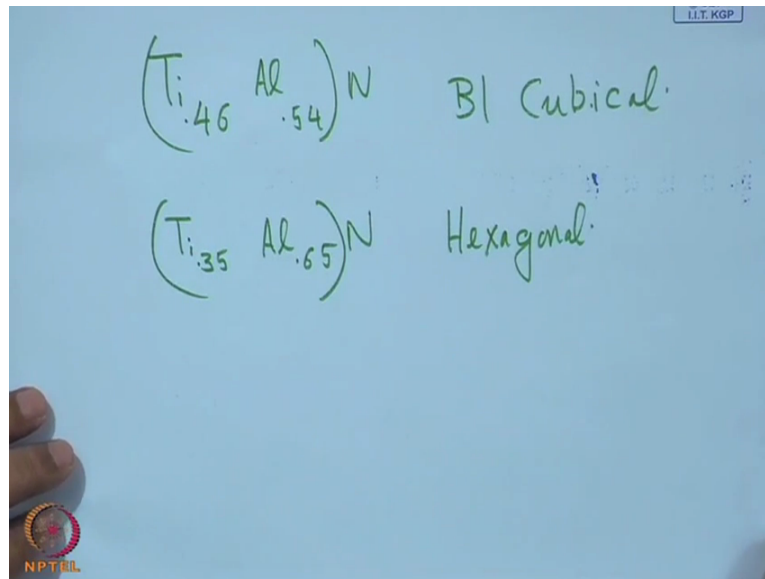 I.I.T. KGP
(Ti.46 Al.54)N B1 Cubical.
(Ti.35 Al.65)N Hexagonal.
NPTEL